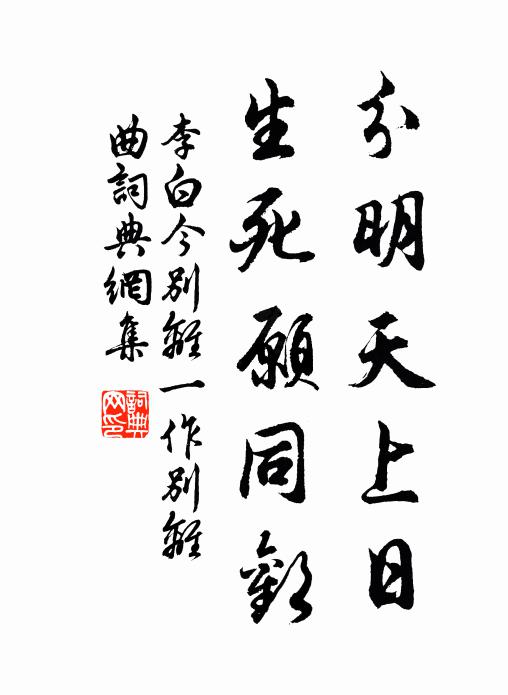 分明天上日
生死願同歡
李白今別離一作別離
曲詞典網集
詞典网印